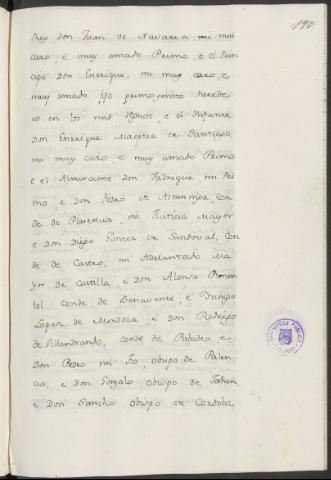 190
Rey Don Juan de Navarra, mi mui
caro e muy amado Primo, e el Prin
cipe Don Enrique, mi muy caro, e
muy amado fijo primogenito herede
ro en los mis Reynos, e el Infante
Don Enrrique Maestre de Santiago,
mi muy caro e muy amado Primo
e el Almirante Don Fadrique mi Pri
mo e Don Pedro de Astunniga, Con
de de Plasencia, mi Justicia Mayor
e Don Diego Gomez de Sandoval, Con
de de Castro, mi Adelantado Ma
yor de Castilla, e Don Alonso Pimen
tel Conde de Benavente, e Innigo
Lopez de Mendoza, e Don Rodrigo
de Villandrando, Conde de Ribadeo e
Don Pedro mi Tio, obispo de Palen
cia, e Don Gonzalo obispo de Jahen
e Don Sancho obispo de Cordoba
BIBLIOTECA PUBLICA